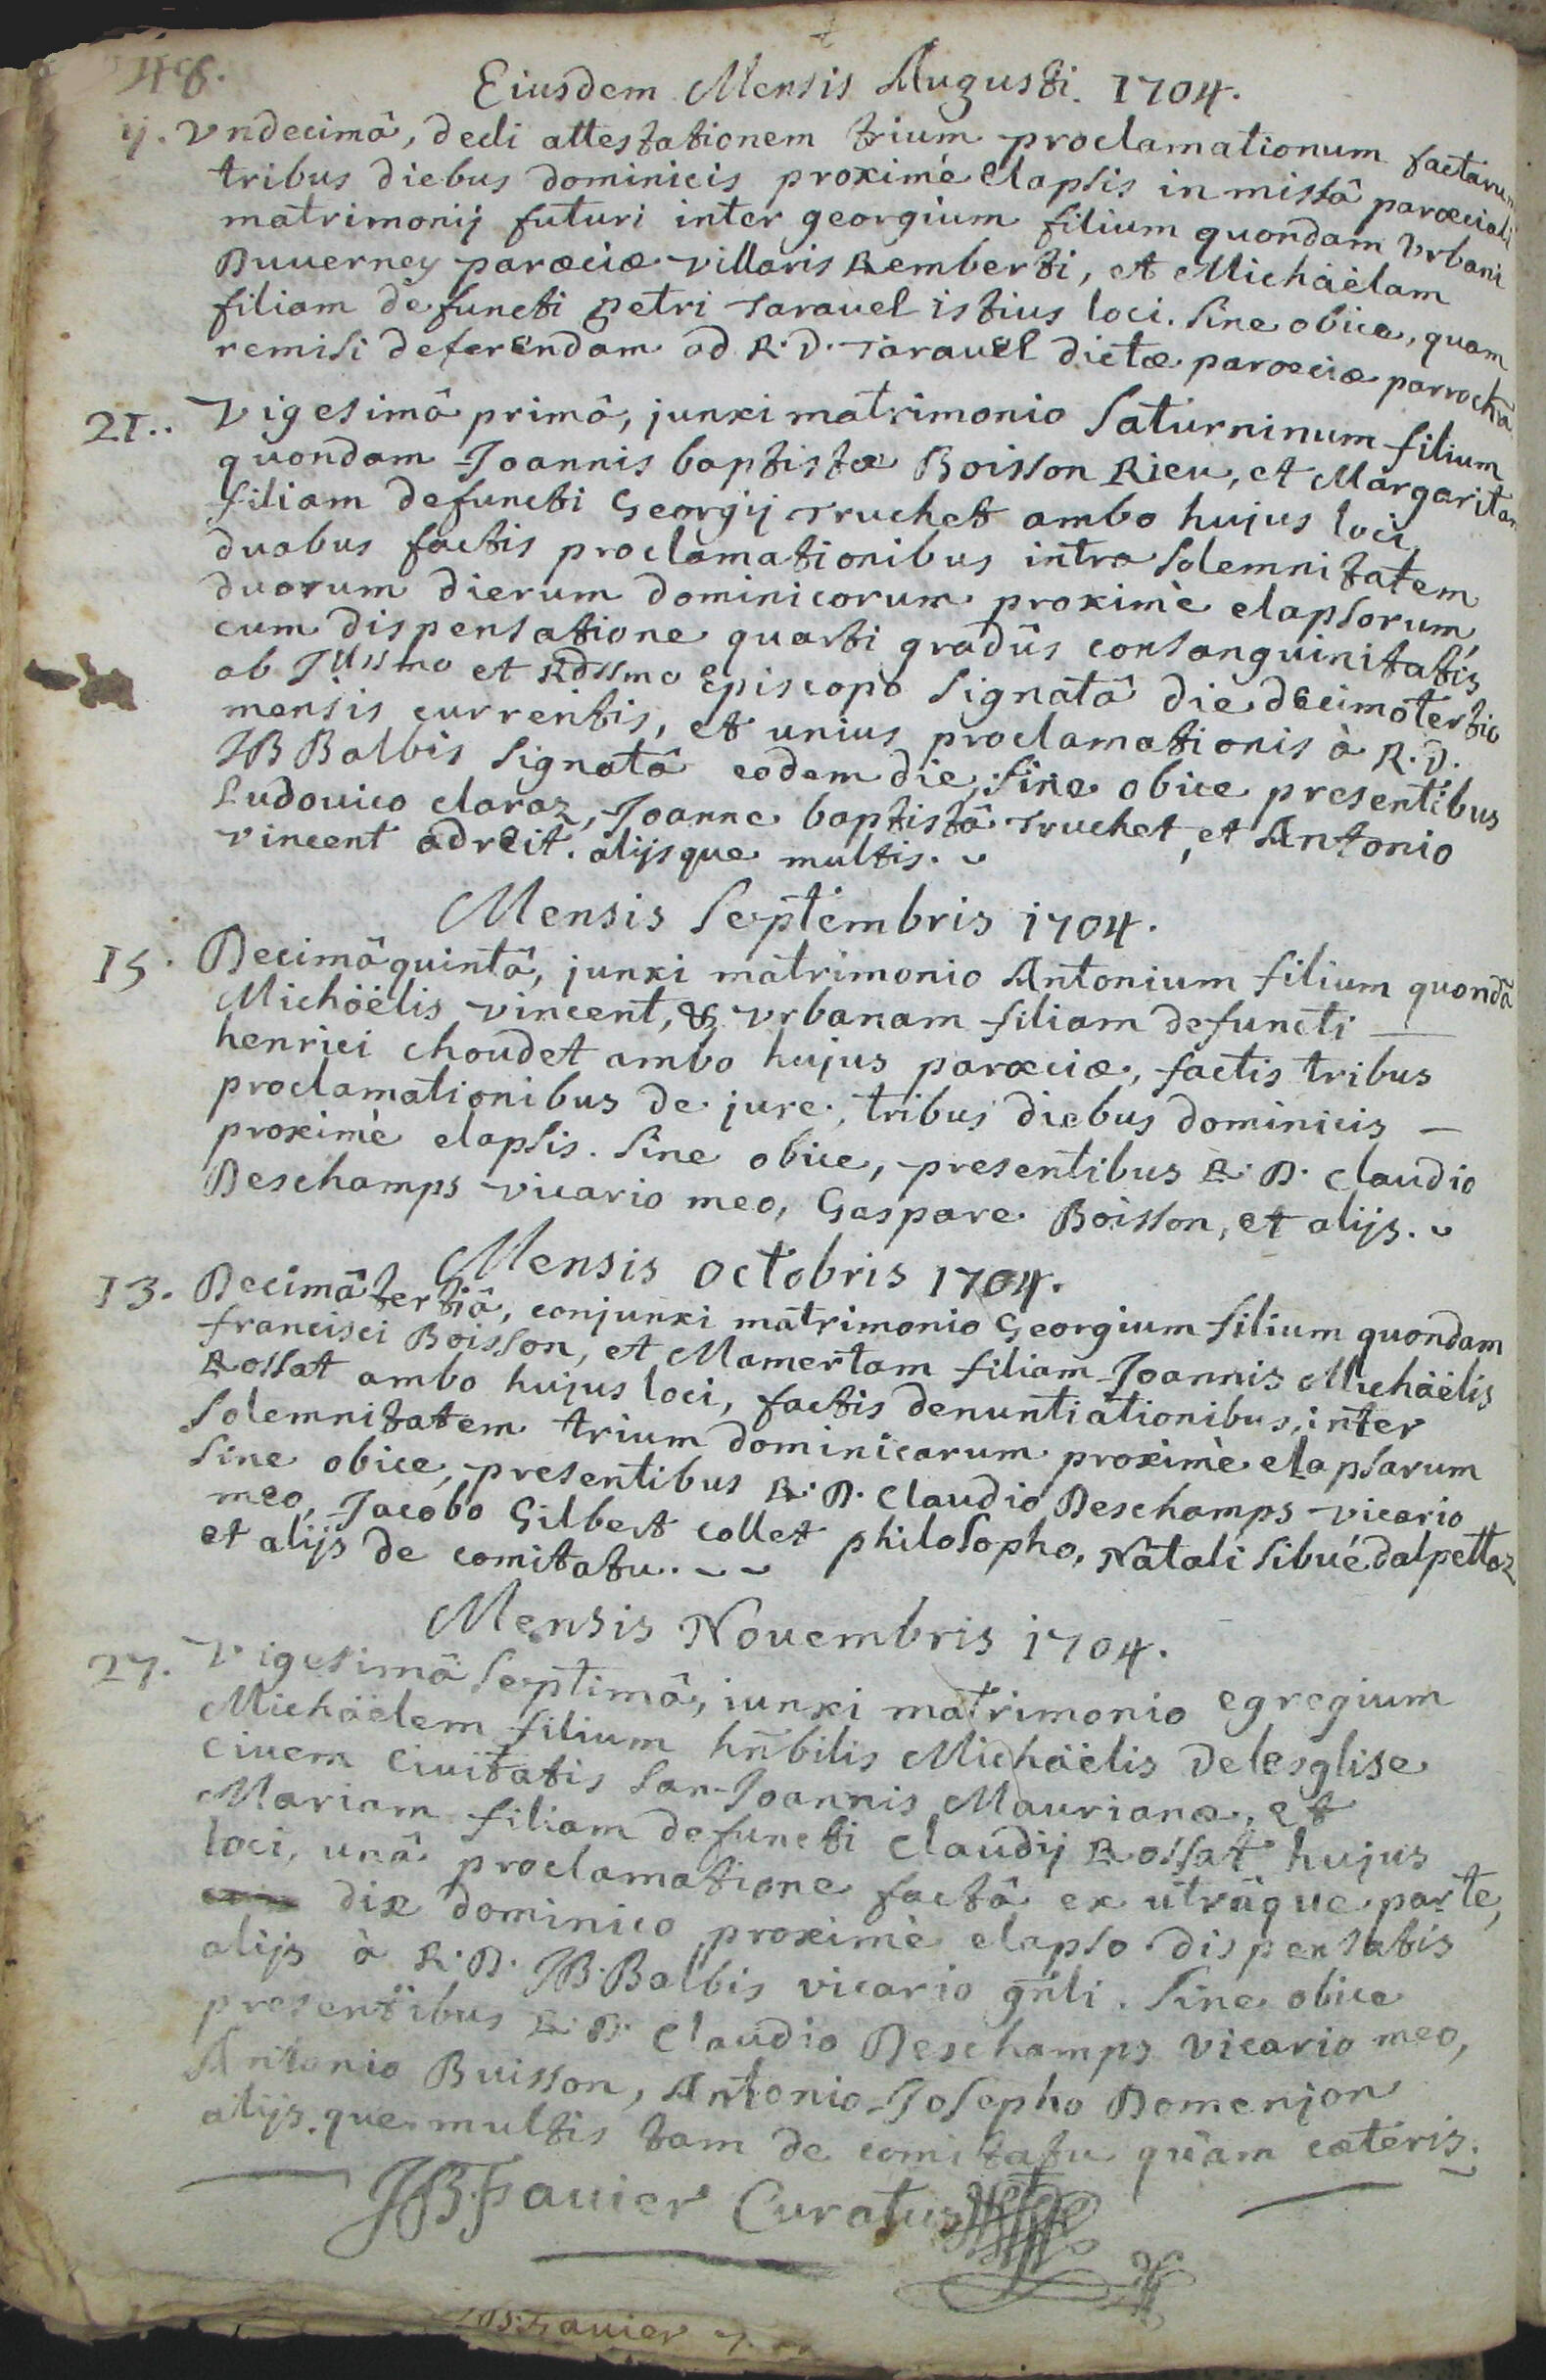 Eiusdem Mensis Augusti. 1704.
ij. Vndecimâ, dedi attestationem trium proclamationum factarum
tribus diebus dominicis proximè elapsis in missâ parœciali
matrimonij futuri inter georgium filium quondam Vrbani
Duuerney parœciæ villaris Remberti, et Michäëlam
filiam defuncti petri Tarauel istius loci. sine obice, quam
remisi deferendam ad R. D. Tarauel dictæ parœciæ parrochũ
21.. Vigesimâ primâ, junxi matrimonio Saturninum filium
quondam Joannis baptistæ Boisson Rieu, et Margaritam
filiam defuncti Georgij Truchet ambo hujus loci,
duabus factis proclamationibus intra solemnitatem
duorum dierum dominicorum proximè elapsorum,
cum dispensatione quarti gradûs consanguinitatis
ab Illssmo et Rdssmo Episcopo signatâ die decimotertio
mensis currentis, et unius proclamationis à R. D.
JB Balbis signatâ eodem die, sine obice presentibus
Ludouico claraz, Joanne baptistâ Truchet, et Antonio
vincent adreit. alijsque multis.
Mensis Septembris 1704.
15. Decimâquintâ, junxi matrimonio Antonium filium quondã
Michäëlis vincent, & vrbanam filiam defuncti —
henrici choudet ambo hujus parœciæ, factis tribus
proclamationibus de jure, tribus diebus dominicis —
proximè elapsis. sine obice, presentibus R. D. claudio
Deschamps vicario meo, Gaspare Boisson, et alijs.
Mensis octobris 1704.
13. Decimâtertiâ, conjunxi matrimonio Georgium filium quondam
francisci Boisson, et Mamertam filiam Joannis Michäëlis
Rossat ambo hujus loci, factis denuntiationibus, inter
solemnitatem trium dominicarum proximè elapsarum
sine obice, presentibus R. D. Claudio Deschamps vicario
meo, Jacobo Gilbert collet philosopho, Natali sibué dalpettaz
et alijs de comitatu.
Mensis Nouembris 1704.
27. Vigesimâ septimâ, iunxi matrimonio egregium
Michäëlem filium hñbilis Michäëlis Delesglise
ciuem ciuitatis san-Joannis Maurianæ, et
Mariam filiam defuncti claudij Rossat hujus
loci, unâ proclamatione factâ ex utrâque parte,
die dominico proximè elapso dispensatis
alijs à R. D. JB. Balbis vicario gñli. sine obice
presentibus R. D. Claudio Deschamps vicario meo,
Antonio Buisson, Antonio Josepho Domenjon
alijs que multis tam de comitatu quàm cæteris.
JB Fauier Curatus